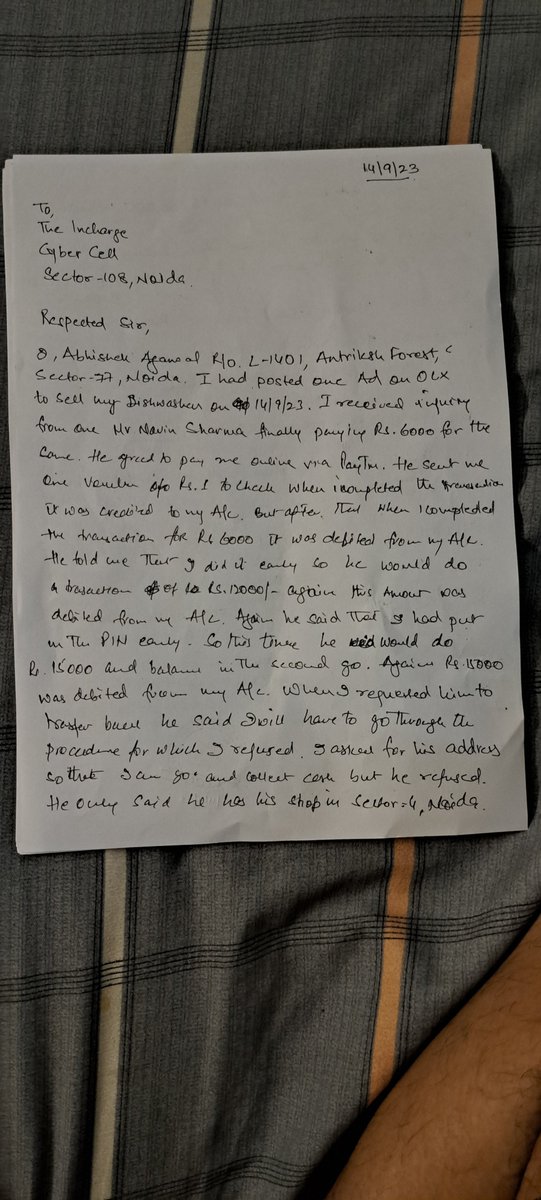 14/9/23
To,
The Incharge
Cyber Cell
Sector-108, Noida.
Respected Sir,
I, Abhishek Agarwal R/o. L-1401, Antriksh Forest,
Sector-77, Noida. I had posted one Ad on OLX
to sell my Dishwasher on 14/9/23. I received inquiry
from one Mr Navin Sharma finally paying Rs. 6000 for the
same. He agreed to pay me online via PayTm. He sent me
one of Rs. 1 to check when I completed the transaction
it was credited to my A/c. But after that when I completed
the transaction for Rs 6000 it was debited from my A/c.
He told me that I did it early so he would do
a trasaction of Rs. 12000/- again this amount was
debited from my A/c. Again he said that I had put
in the PIN early. So this time he would do
Rs. 15000 and balance in the second go. Again Rs. 15000
was debited from my A/c. When I requested him to
transfer back he said I will have to go through the
procedure for which I refused. I asked for his address
so that I can go and collect cash but he refused.
He only said he has his shop in Sector-4, Noida.